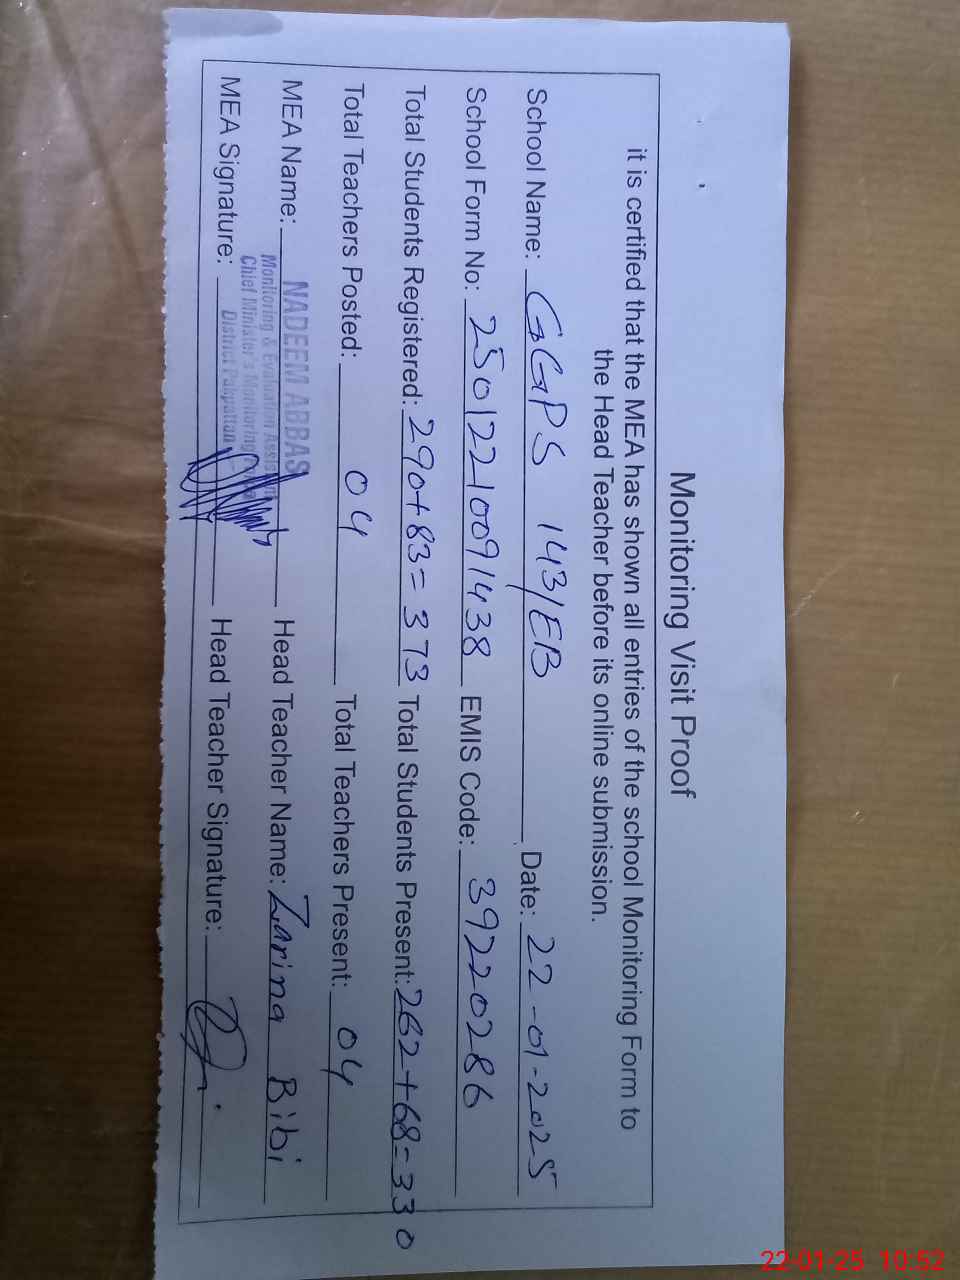 Monitoring Visit Proof
it is certified that the MEA has shown all entries of the school Monitoring Form to
the Head Teacher before its online submission.
School Name: GGPS 143/EB Date: 22-01-2025
School Form No: 25012210091438 EMIS Code: 39220286
Total Students Registered: 290+83=373 Total Students Present: 262+68=330
Total Teachers Posted: 04 Total Teachers Present: 04
MEA Name: NADEEM ABBAS Head Teacher Name: Zarina Bibi
Monitoring & Evaluation
Chief Minister's Monitoring
MEA Signature: District Pakpattan Head Teacher Signature:
22-01-25 10:52